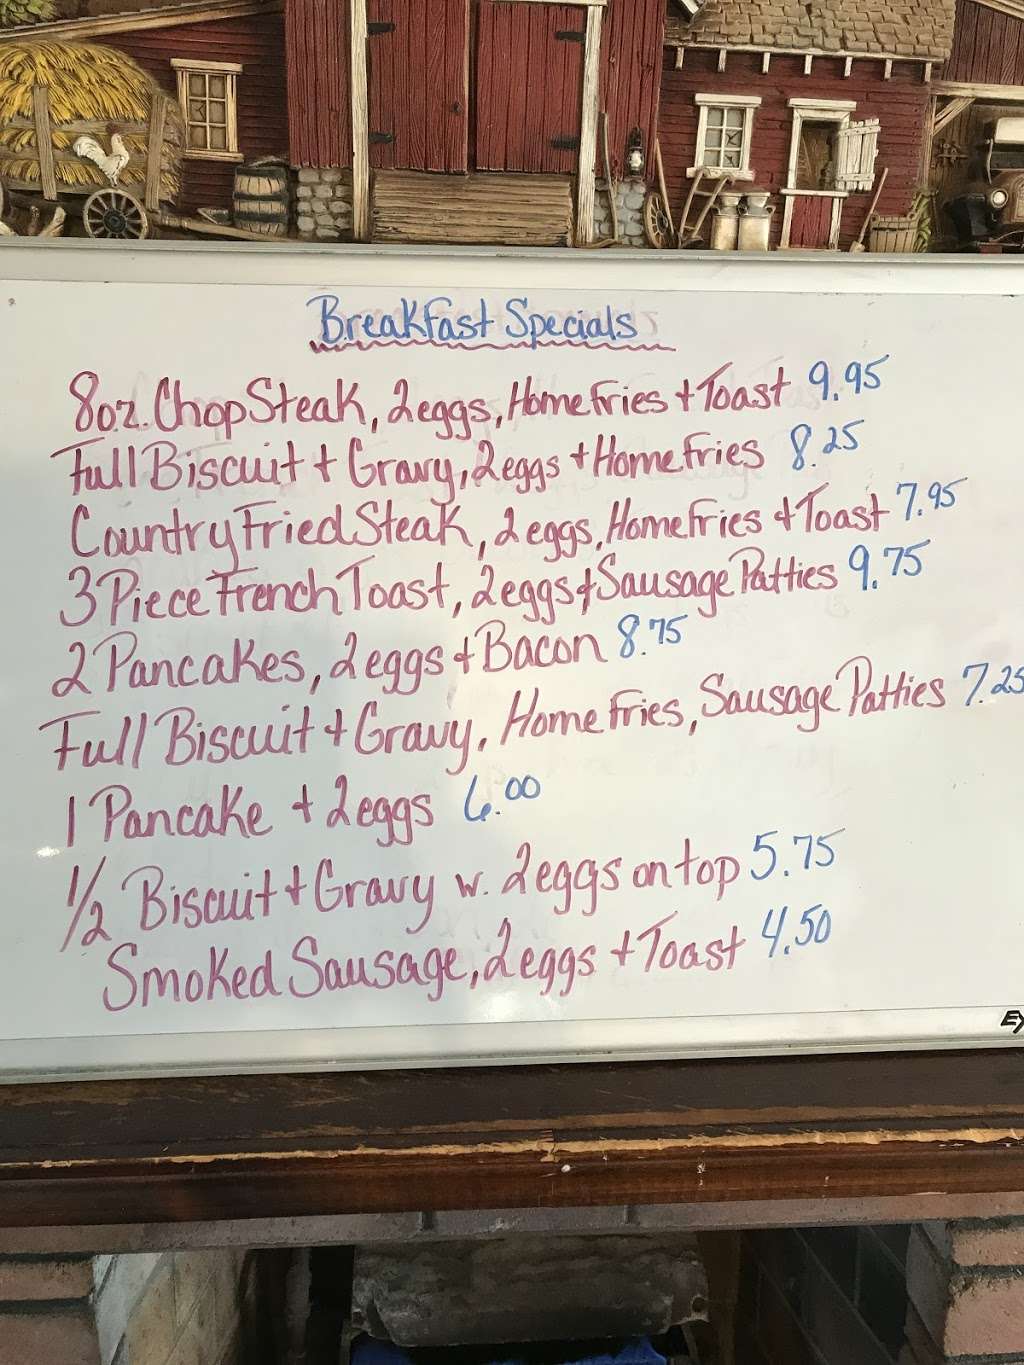 Breakfast Specials
8oz. Chop Steak, 2eggs, Home Fries + Toast 9.95
Full Biscuit + Gravy, 2eggs + Home Fries 8.25
Country Fried Steak, 2eggs, Home Fries + Toast 7.95
3 Piece French Toast, 2eggs + Sausage Patties 9.75
2 Pancakes, 2eggs + Bacon 8.75
Full Biscuit + Gravy, Home Fries, Sausage Patties 7.25
1 Pancake + 2eggs 6.00
1/2 Biscuit + Gravy w. 2eggs on top 5.75
Smoked Sausage, 2eggs + Toast 4.50